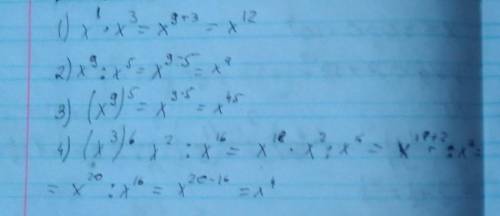 1) x⁹ · x³ = x⁹⁺³ = x¹²
2) x⁹ : x⁵ = x⁹⁻⁵ = x⁴
3) (x⁹)⁵ = x⁹·⁵ = x⁴⁵
4) (x³)⁶ x² : x¹⁶ = x¹⁸ · x² : x¹⁶ = x¹⁸⁺² : x¹⁶ =
= x²⁰ : x¹⁶ = x²⁰⁻¹⁶ = x⁴